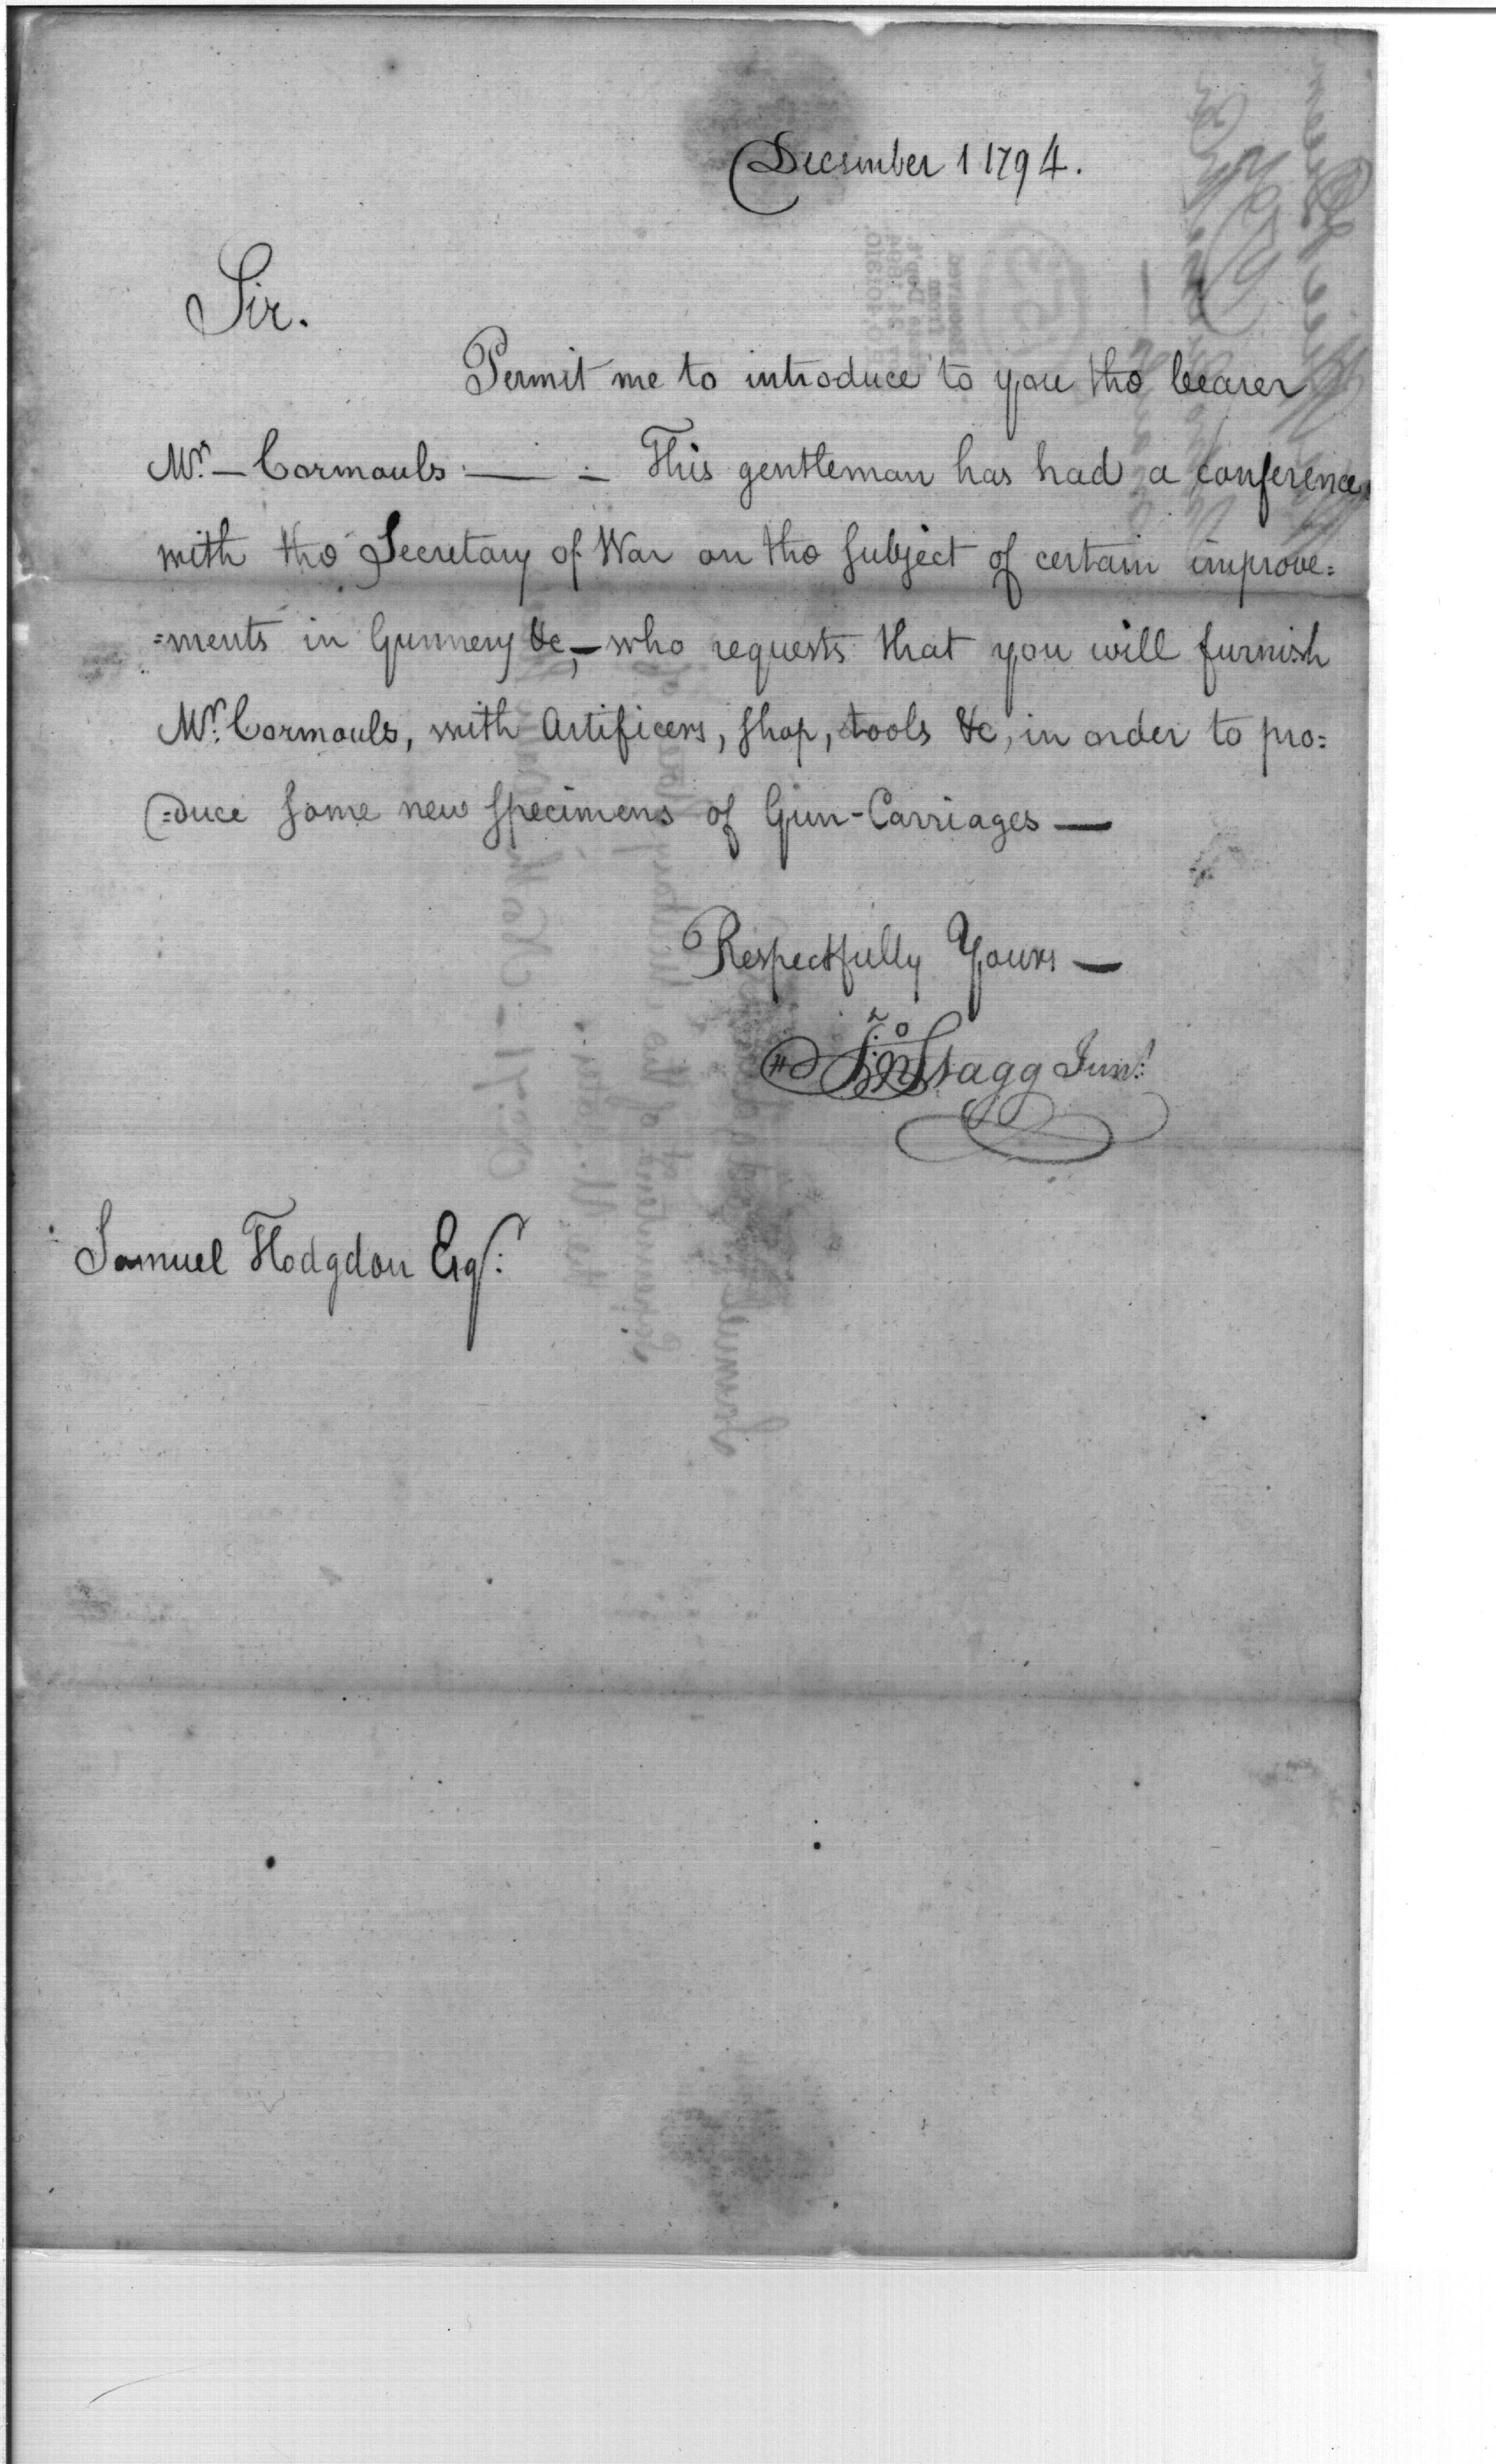 December 1 1794.
Sir.
Permit me to introduce to you the bearer
Mr. — Cormouls — . — This gentleman has had a conference
with the Secretary of War on the subject of certain improve=
=ments in Gunnery &c, — who requests that you will furnish
Mr. Cormouls, with Artificers, shop, tools &c, in order to pro=
=duce some new specimens of Gun-Carriages —
Respectfully Yours —
Jno Stagg Junr.
Samuel Hodgdon Esqr.